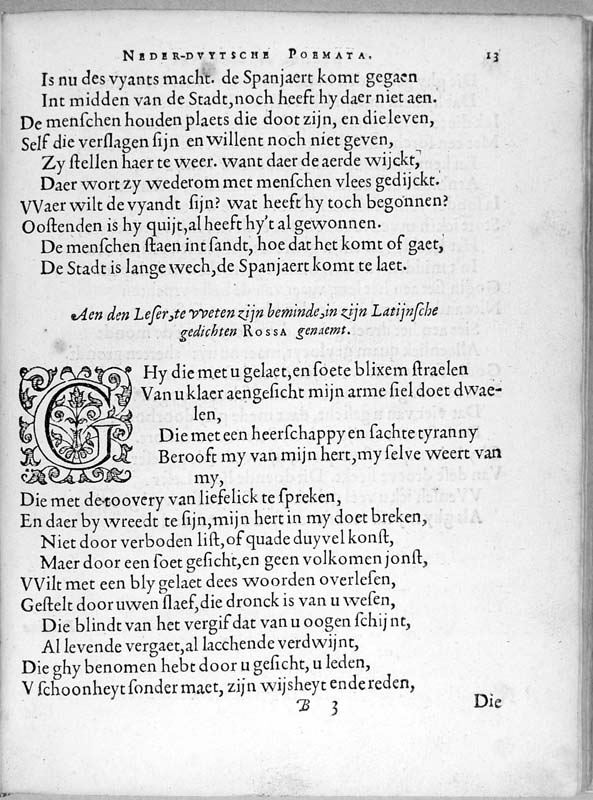 NEDER-DVYTSCHE POEMATA. 13
Is nu des vyants macht. de Spanjaert komt gegaen
Int midden van de Stadt, noch heeft hy daer niet aen.
De menſchen houden plaets die doot zijn, en die leven,
Self die verſlagen ſijn en willent noch niet geven,
Zy ſtellen haer te weer. want daer de aerde wijckt,
Daer wort zy wederom met menſchen vlees gedijckt.
VVaer wilt de vyandt ſijn? wat heeft hy toch begonnen?
Ooſtenden is hy quijt, al heeft hy't al gewonnen.
De menſchen ſtaen int ſandt, hoe dat het komt of gaet,
De Stadt is lange wech, de Spanjaert komt te laet.
Aen den Leſer, te vveten zijn beminde, in zijn Latijnſche
gedichten ROSSA genaemt.
GHy die met u gelaet, en ſoete blixem ſtraelen
Van u klaer aengeſicht mijn arme ſiel doet dwae-
len,
Die met een heerſchappy en ſachte tyranny
Berooft my van mijn hert, my ſelve weert van
my,
Die met de toovery van liefelick te ſpreken,
En daer by wreedt te ſijn, mijn hert in my doet breken,
Niet door verboden liſt, of quade duyvel konſt,
Maer door een ſoet geſicht, en geen volkomen jonſt,
VVilt met een bly gelaet dees woorden overleſen,
Geſtelt door uwen ſlaef, die dronck is van u weſen,
Die blindt van het vergif dat van u oogen ſchijnt,
Al levende vergaet, al lacchende verdwijnt,
Die ghy benomen hebt door u geſicht, u leden,
V ſchoonheyt ſonder maet, zijn wijsheyt ende reden,
B 3 Die